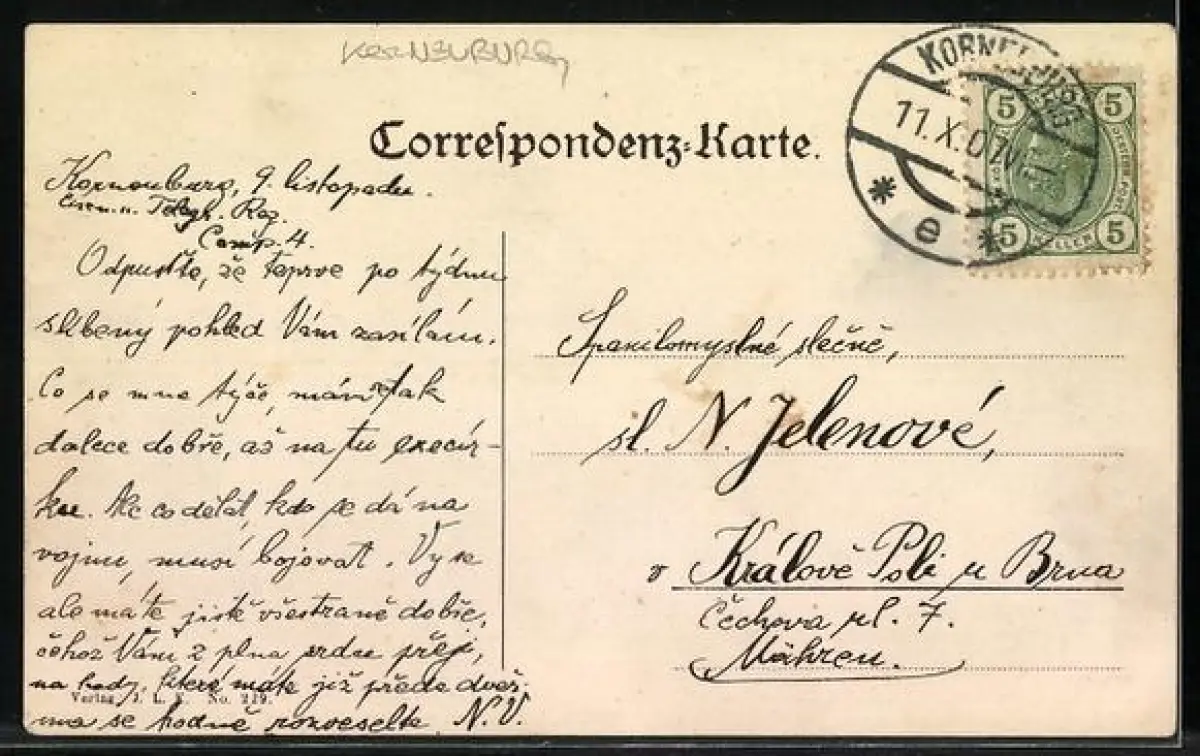 KORNEUBURG
Correspondenz-Karte.
KORNEUBURG
11.X.07
* e *
5 5
5 HELLER 5
Korneuburg, 9. listopadu.
Eisen. u. Telegr. Reg.
Comp. 4.
Odpusťte, že teprve po týdnu
slíbený pohled Vám zasílám.
Co se mne týče, mám se tak
dalece dobře, až na tu execír-
ku. Ale co dělat, kdo se dá na
vojnu, musí bojovat. Vy se
ale máte jistě všestraně dobře,
čehož Vám z plna srdce přeji,
na hody, které máte již přede dveř-
ma se hodně rozveselte. N.V.
Verlag J. L. K. No. 219.
Spanilomyslné slečně,
sl. N. Jelenové,
v Králově Poli u Brna
Čechova ul. 7.
Mähren.